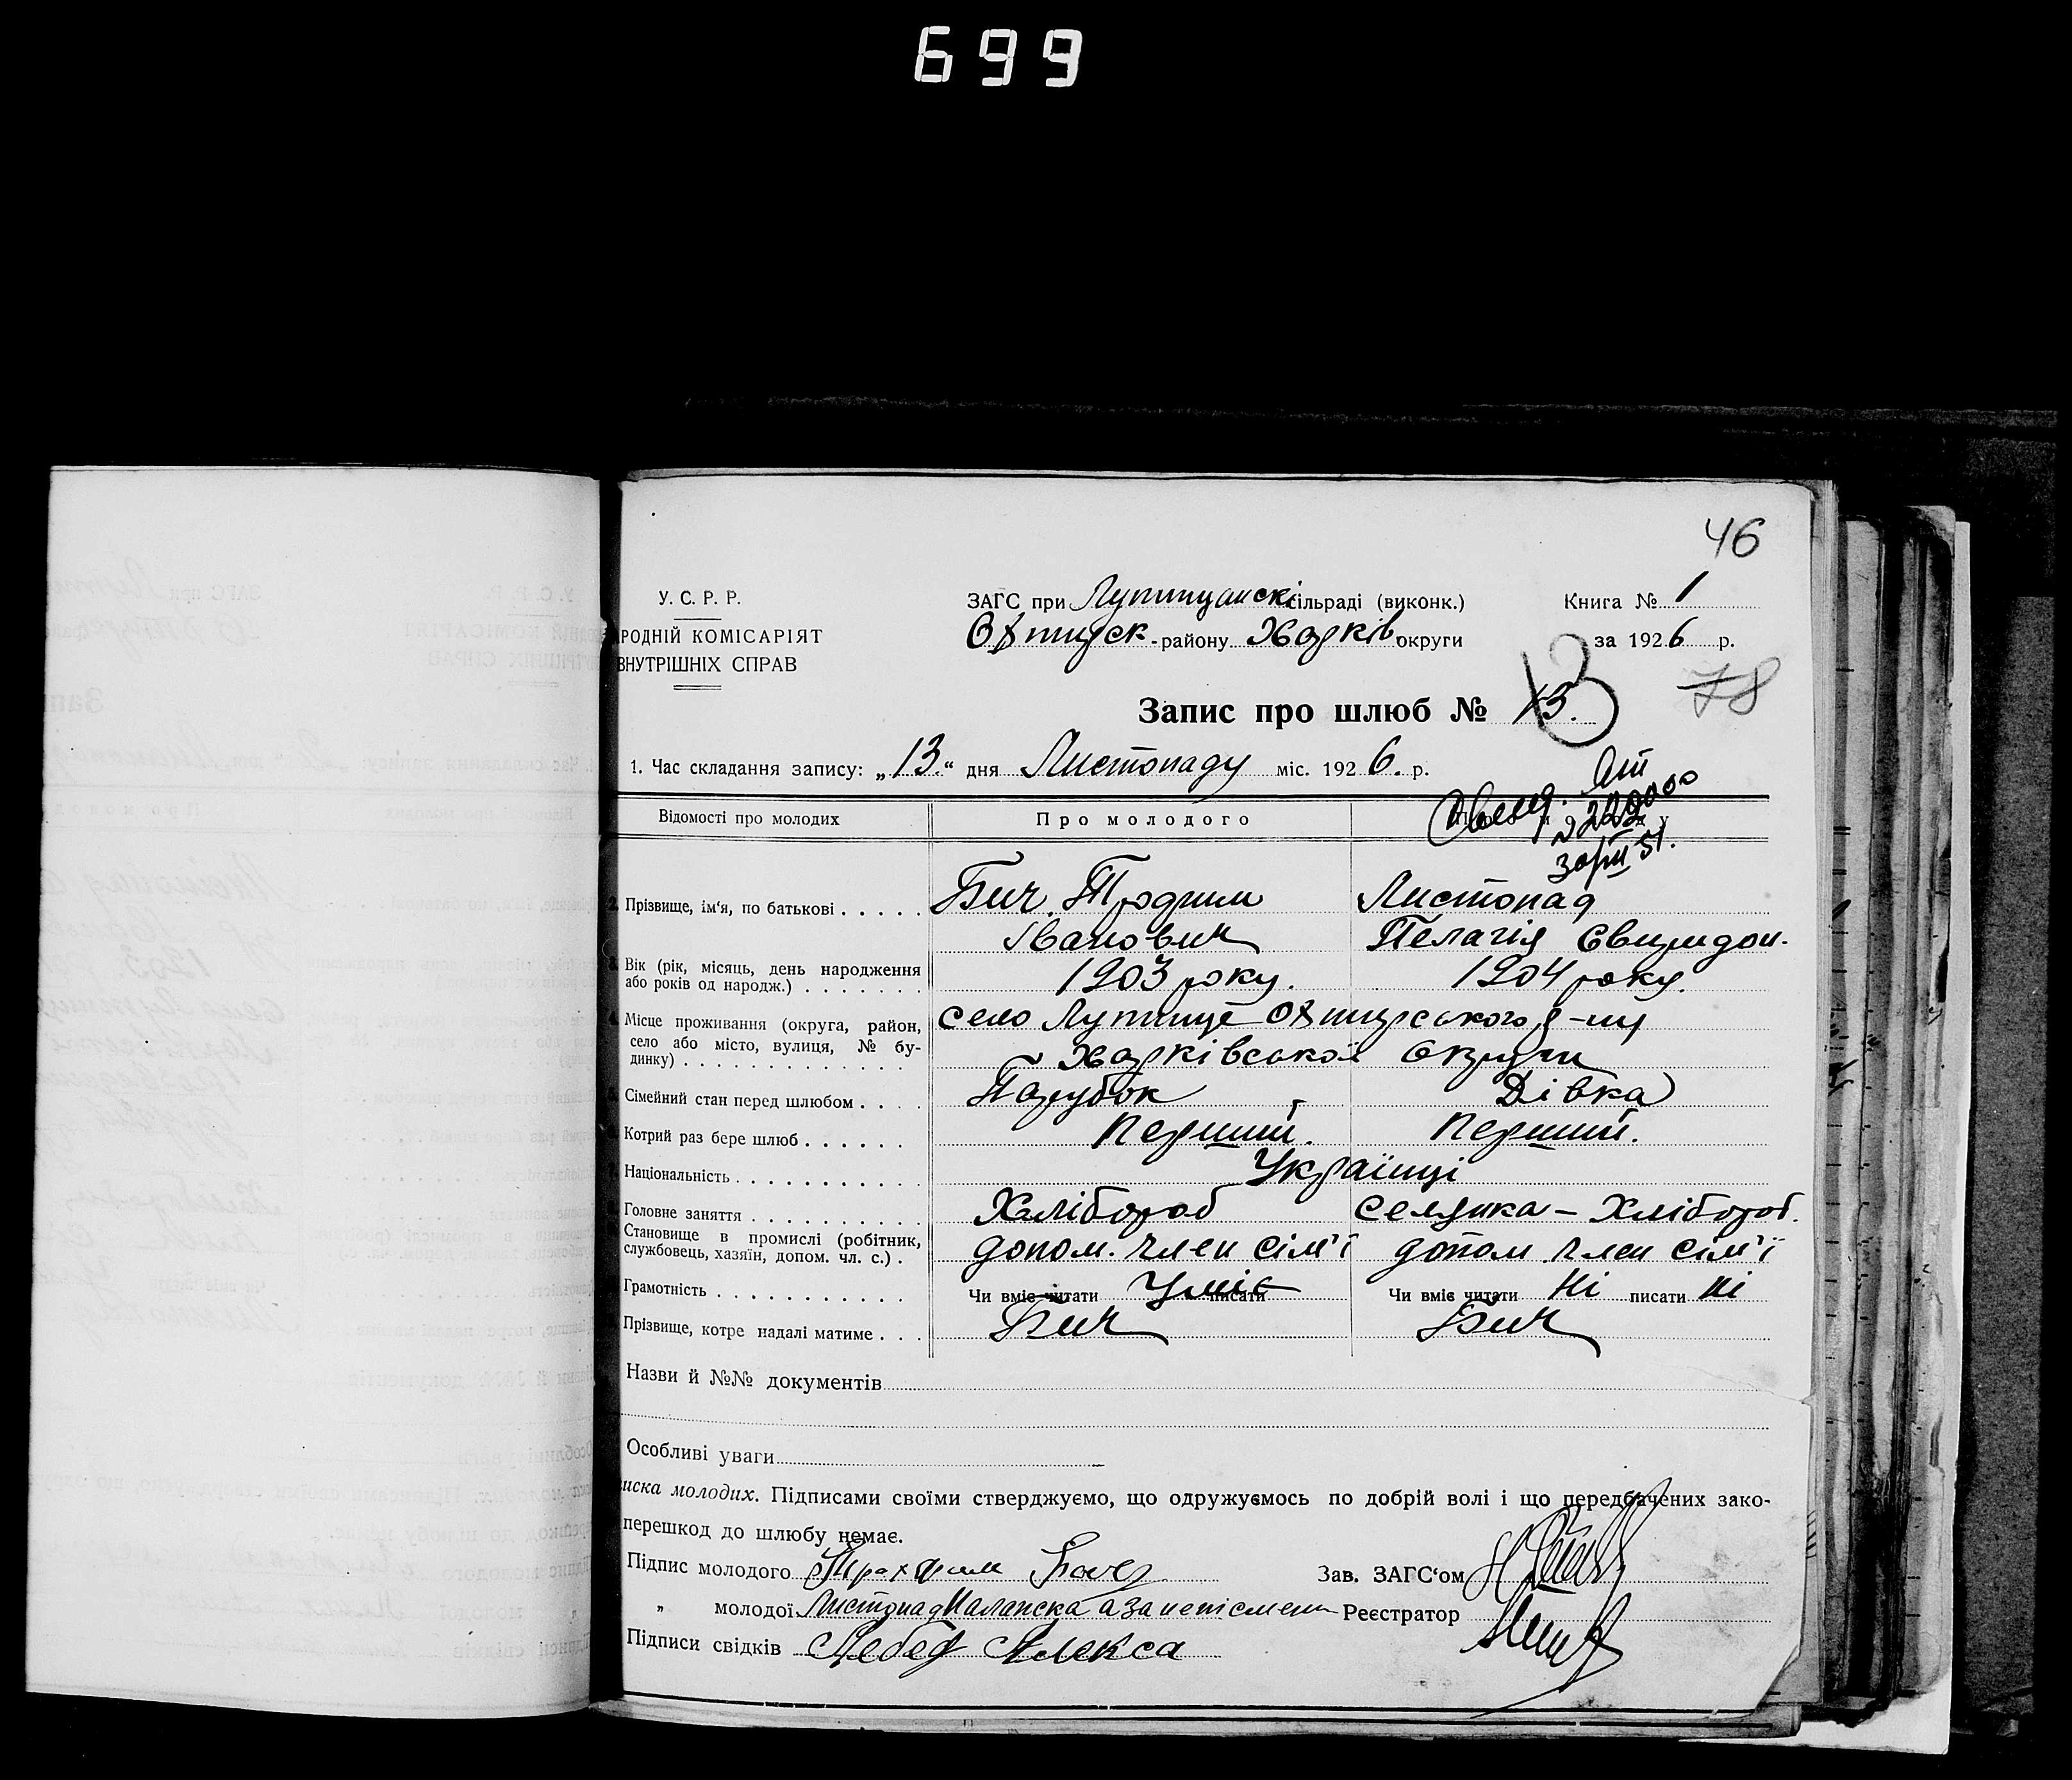 699
46
У. С. Р. Р.
РОДНІЙ КОМІСАРІЯТ
ВНУТРІШНІХ СПРАВ
ЗАГС при Лутищанскі сільраді (виконк.)
Охтирск. району Харків. округи
Книга № 1
за 1926 р.
78
Запис про шлюб № 13.
13
1. Час складання запису: „13.“ дня Листопаду міс. 1926. р.
Відомості про молодих
Про молодого
2. Прізвище, ім'я, по батькові Бич Трохим Листопад
Іванович Пелагія Євиридон.
Вік (рік, місяць, день народження або років од народж.) 1903 року. 1904 року.
Місце проживання (округа, район, село або місто, вулиця, № будинку) село Лутище Охтирського р-ну
Харківської Округи
Сімейний стан перед шлюбом Парубок Дівка
Котрий раз бере шлюб Перший. Перший.
Національність Українці
Головне заняття Хлібороб селянка – Хлібороб.
Становище в промислі (робітник, службовець, хазяїн, допом. чл. с.) допом. член сім'ї допом член сім'ї
Грамотність Чи вміє читати Уміє писати Чи вміє читати Ні писати ні
Прізвище, котре надалі матиме Бич Бич
Назви й №№ документів
Особливі уваги
иска молодих. Підписами своїми стверджуємо, що одружуємось по добрій волі і що передбачених зако-
перешкод до шлюбу немає.
Підпис молодого Трахфим Зав. ЗАГС'ом
„ молодої Листопад а за неписмен Реєстратор
Підписи свідків Лебедь Алекса